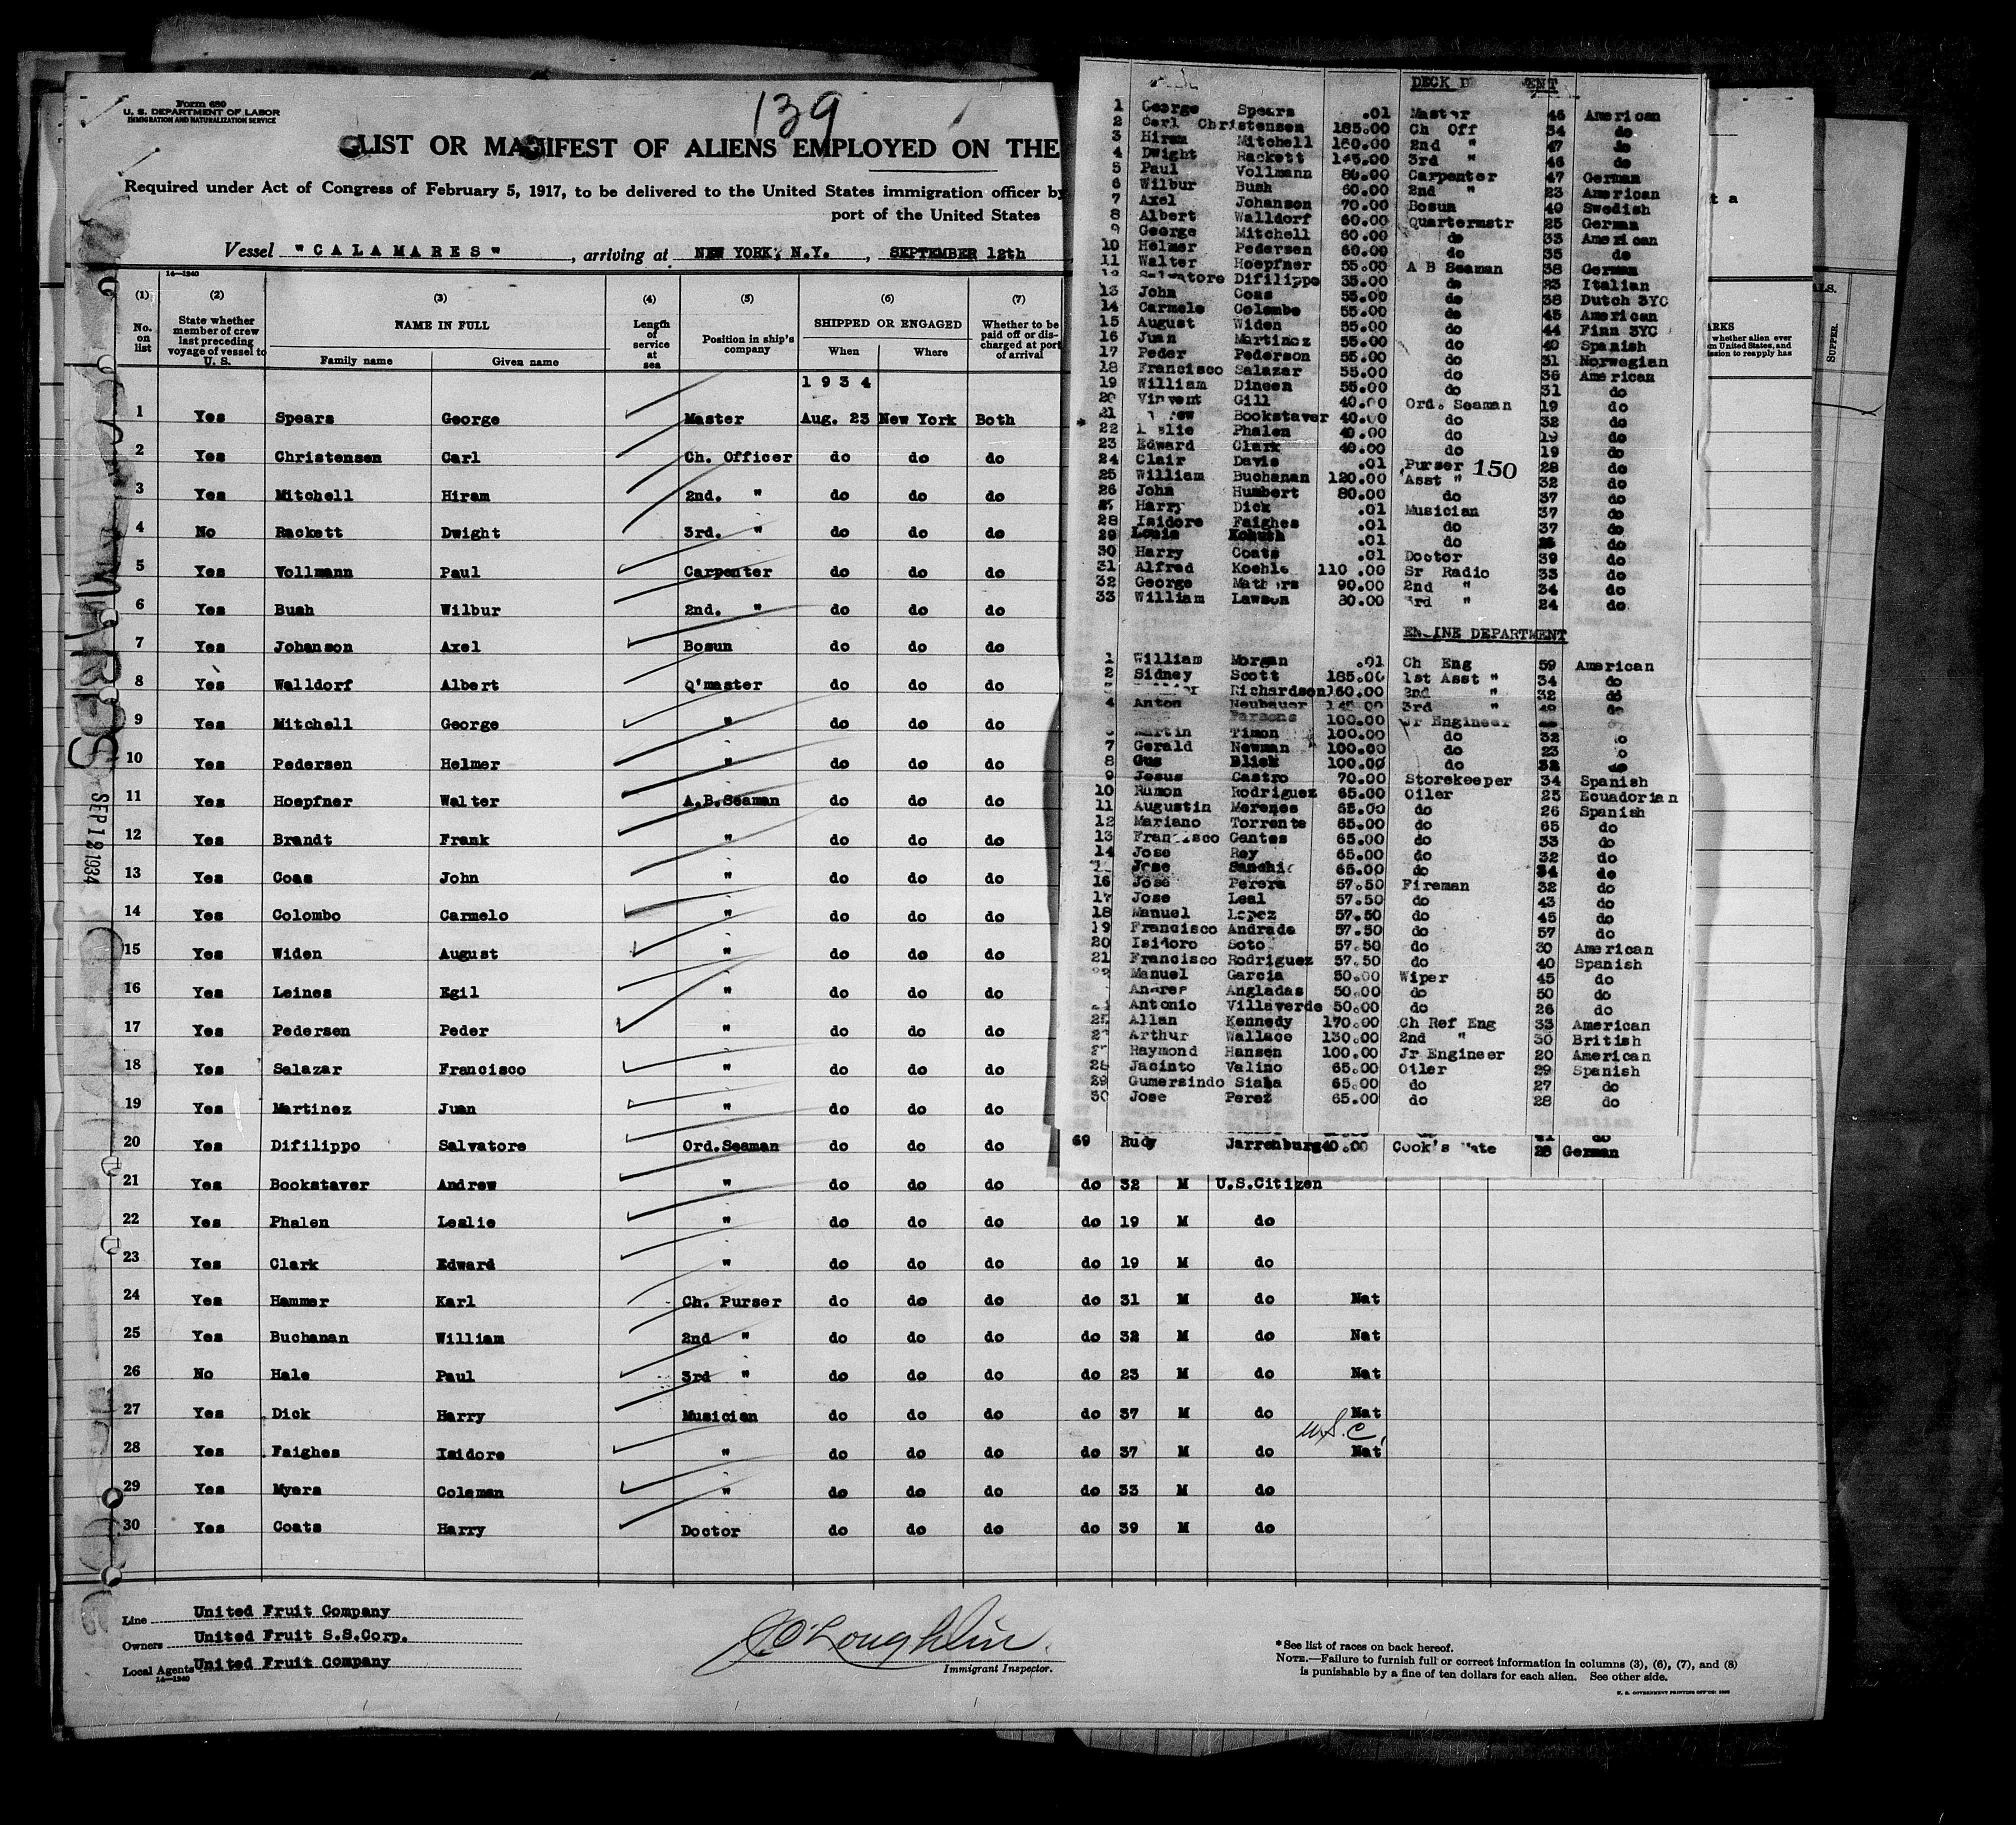 Form 680
U. S. DEPARTMENT OF LABOR
IMMIGRATION AND NATURALIZATION SERVICE
139
LIST OR MANIFEST OF ALIENS EMPLOYED ON THE
Required under Act of Congress of February 5, 1917, to be delivered to the United States immigration officer by
port of the United States
Vessel "CALAMARES", arriving at NEW YORK, N.Y., SEPTEMBER 12th
14—1240
(1) (2) (3) (4) (5) (6) (7)
No. on list
State whether member of crew last preceding voyage of vessel to U. S.
NAME IN FULL
Family name Given name
Length of service at sea
Position in ship's company
SHIPPED OR ENGAGED
When Where
Whether to be paid off or discharged at port of arrival
1934
1 Yes Spears George Master Aug. 23 New York Both
2 Yes Christensen Carl Ch. Officer do do do
3 Yes Mitchell Hiram 2nd. " do do do
4 No Rackett Dwight 3rd. " do do do
5 Yes Vollmann Paul Carpenter do do do
6 Yes Bush Wilbur 2nd. " do do do
7 Yes Johanson Axel Bosun do do do
8 Yes Walldorf Albert Q'master do do do
9 Yes Mitchell George " do do do
10 Yes Pedersen Helmer " do do do
11 Yes Hoepfner Walter A.B.Seaman do do do
12 Yes Brandt Frank " do do do
13 Yes Coas John " do do do
14 Yes Colombo Carmelo " do do do
15 Yes Widen August " do do do
16 Yes Leines Egil " do do do
17 Yes Pedersen Peder " do do do
18 Yes Salazar Francisco " do do do
19 Yes Martinez Juan " do do do
20 Yes Difilippo Salvatore Ord.Seaman do do do
21 Yes Bookstaver Andrew " do do do do 32 M U.S.Citizen
22 Yes Phalen Leslie " do do do do 19 M do
23 Yes Clark Edward " do do do do 19 M do
24 Yes Hammer Karl Ch. Purser do do do do 31 M do Nat
25 Yes Buchanan William 2nd " do do do do 32 M do Nat
26 No Hale Paul 3rd " do do do do 23 M do Nat
27 Yes Dick Harry Musician do do do do 37 M do Nat
U.S.C.
28 Yes Faighes Isidore " do do do do 37 M do Nat
29 Yes Myers Coleman " do do do do 33 M do
30 Yes Coats Harry Doctor do do do do 39 M do
Line United Fruit Company
Owners United Fruit S.S.Corp.
Local Agents United Fruit Company
14—1240
J O'Loughlin
Immigrant Inspector.
*See list of races on back hereof.
NOTE.—Failure to furnish full or correct information in columns (3), (6), (7), and (8)
is punishable by a fine of ten dollars for each alien. See other side.
U. S. GOVERNMENT PRINTING OFFICE
SEP 12 1934
DECK D ENT
1 George Spears .01 Master 46 American
2 Carl Christensen 185.00 Ch Off 34 do
3 Hiram Mitchell 160.00 2nd " 47 do
4 Dwight Rackett 145.00 3rd " 46 do
5 Paul Vollmann 80.00 Carpenter 47 German
6 Wilbur Bush 60.00 2nd " 23 American
7 Axel Johanson 70.00 Bosun 40 Swedish
8 Albert Walldorf 60.00 Quartermstr 25 German
9 George Mitchell 60.00 do 33 American
10 Helmer Pedersen 60.00 do 35 do
11 Walter Hoepfner 55.00 A B Seaman 38 German
Difilippo 35.00 do 23 Italian
13 John Coas 55.00 do 38 Dutch 3YC
14 Carmelo Colombo 55.00 do 45 American
15 August Widen 55.00 do 44 Finn 3YC
16 Juan Martinez 55.00 do 40 Spanish
17 Peder Pederson 55.00 do 31 Norwegian
18 Francisco Salazar 55.00 do 36 American
19 William Dineen 55.00 do 31 do
20 Vincent Gill 40.00 Ord. Seaman 19 do
21 Bookstaver 40.00 do 32 do
22 Phalen 40.00 do 19 do
23 Edward Clark 40.00 do 19 do
24 Clair Davis .01 Purser 28 do
150
25 William Buchanan 120.00 Asst " 32 do
26 John Humbert 80.00 do 37 do
Harry Dick .01 Musician 37 do
28 Isidore Faighes .01 do 37 do
29 Louis .01 do do
30 Harry Coats .01 Doctor 39 do
31 Alfred Koehle 110.00 Sr Radio 33 do
32 George Mathers 90.00 2nd " 34 do
33 William Lawson 80.00 3rd " 24 do
ENGINE DEPARTMENT
1 William Morgan .01 Ch Eng 59 American
2 Sidney Scott 185.00 1st Asst " 34 do
Richardson 160.00 2nd " 32 do
4 Anton Neubauer 145.00 3rd " 49 do
Parsons 100.00 Jr Engineer
Martin Timon 100.00 do 32 do
7 Gerald Newman 100.00 do 23 do
8 Gus Blick 100.00 do 32 do
9 Jesus Castro 70.00 Storekeeper 34 Spanish
10 Ramon Rodriguez 65.00 Oiler 25 Ecuadorian
11 Augustin Merenes 65.00 do 26 Spanish
12 Mariano Torrente 65.00 do 65 do
13 Francisco Gantes 65.00 do 33 do
14 Jose Rey 65.00 do 32 do
Jose 65.00 do 34 do
16 Jose Perera 57.50 Fireman 32 do
17 Jose Leal 57.50 do 43 do
18 Manuel Lopez 57.50 do 45 do
19 Francisco Andrade 57.50 do 57 do
20 Isidoro Soto 57.50 do 30 American
21 Francisco Rodriguez 57.50 do 40 Spanish
Manuel Garcia 50.00 Wiper 45 do
Andres Angladas 50.00 do 50 do
Antonio Villaverde 50.00 do 26 do
25 Allan Kennedy 170.00 Ch Ref Eng 33 American
Arthur Wallace 130.00 2nd " 30 British
Raymond Hansen 100.00 Jr Engineer 20 American
28 Jacinto Valino 65.00 Oiler 29 Spanish
29 Gumersindo Siaba 65.00 do 27 do
30 Jose Perez 65.00 do 28 do
69 Rudy Jarrenburg 40.00 Cook's Mate 28 German
SUPPER